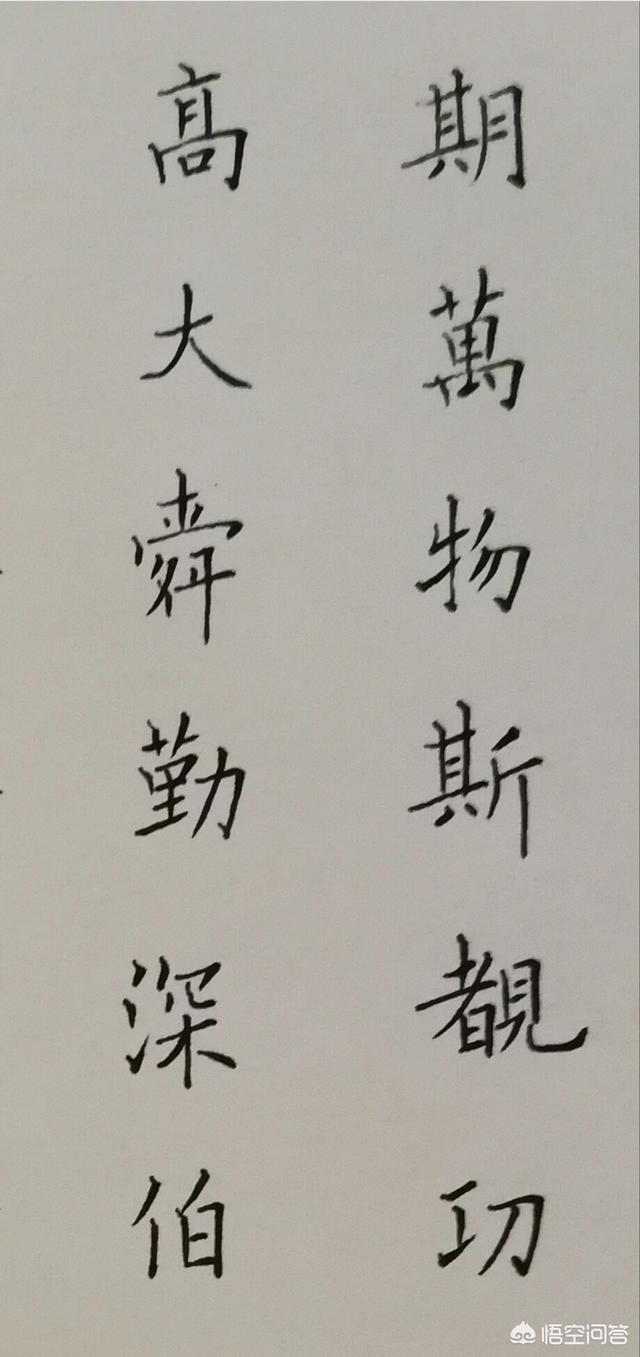 期萬物斯覩功
高大舜勤深伯
悟空问答